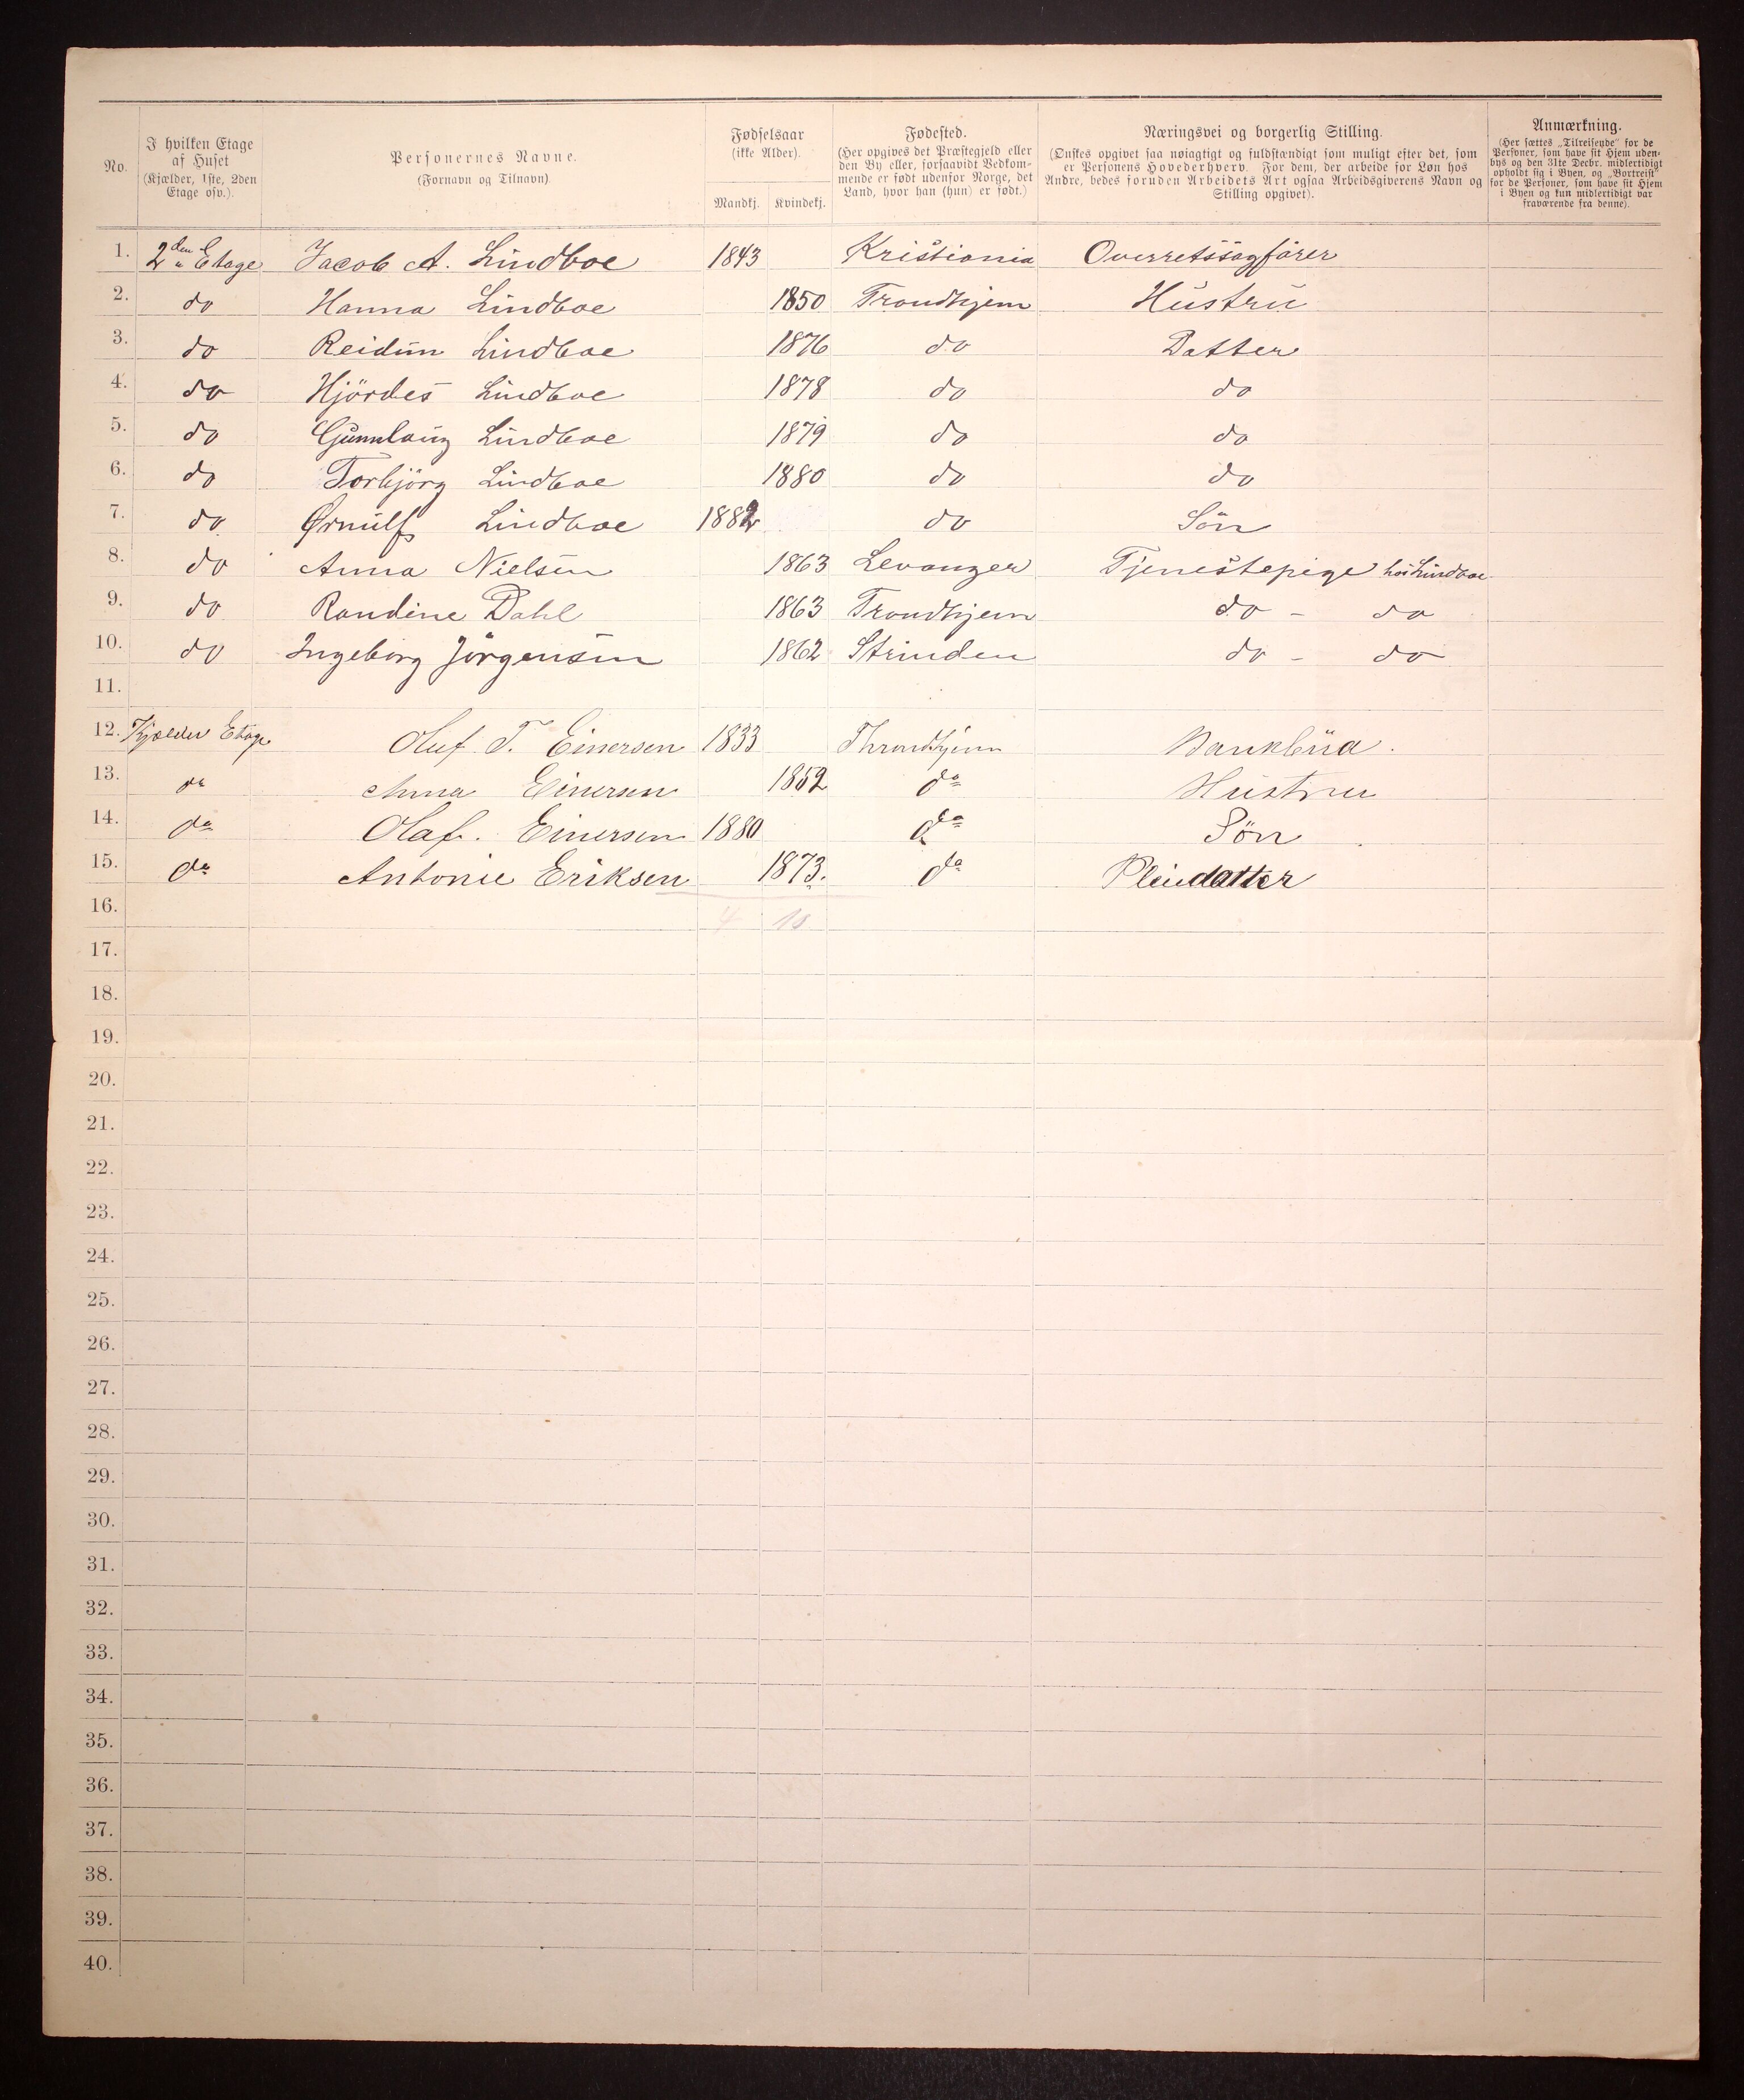 No.
I hvilken Etage af Huset (Kjælder, 1ste, 2den Etage osv.).
Personernes Navne. (Fornavn og Tilnavn)
Fødselsaar (ikke Alder).
Mandkj. Kvindekj.
Fødested. (Her opgives det Præstegjeld eller den By eller, forsaavidt Vedkommende er født udenfor Norge, det Land, hvor han (hun) er født.)
Næringsvei og borgerlig Stilling. (Ønskes opgivet saa nøiagtigt og fuldstændigt som muligt efter det, som er Personens Hovederhverv. For dem, der arbeide for Løn hos Andre, bedes foruden Arbeidets Art ogsaa Arbeidsgiverens Navn og Stilling opgivet).
Anmærkning. (Her sættes „Tilreisende" for de Personer, som have sit Hjem udenbys og den 31te Decbr. midlertidigt opholdt sig i Byen, og „Bortreist" for de Personer, som have sit Hjem i Byen og kun midlertidigt var fraværende fra denne).
1. 2den Etage Jacob A. Lindboe 1843 Kristiania Overretssagfører
2. do Hanna Lindboe 1850 Trondhjem Hustru
3. do Reidun Lindboe 1876 do Datter
4. do Hjördes Lindboe 1878 do do
5. do Gunnlaug Lindboe 1879 do do
6. do Torbjörg Lindboe 1880 do do
7. do Ørnulf Lindboe 1882 do Sön
8. do Anna Nielsen 1863 Levanger Tjenestepige hos Lindboe
9. do Randine Dahl 1863 Trondhjem do - do
10. do Ingeborg Jörgensen 1862 Strinden do - do
11.
12. Kjælder Etage Oluf T. Einersen 1833 Throndhjem Bankbud.
13. do Anna Einersen 1852 do Hustru
14. do Olaf. Einersen 1880 do Sön
15. do Antonie Eriksen 1873. do Pleiedatter
16. 4 10
17.
18.
19.
20.
21.
22.
23.
24.
25.
26.
27.
28.
29.
30.
31.
32.
33.
34.
35.
36.
37.
38.
39.
40.